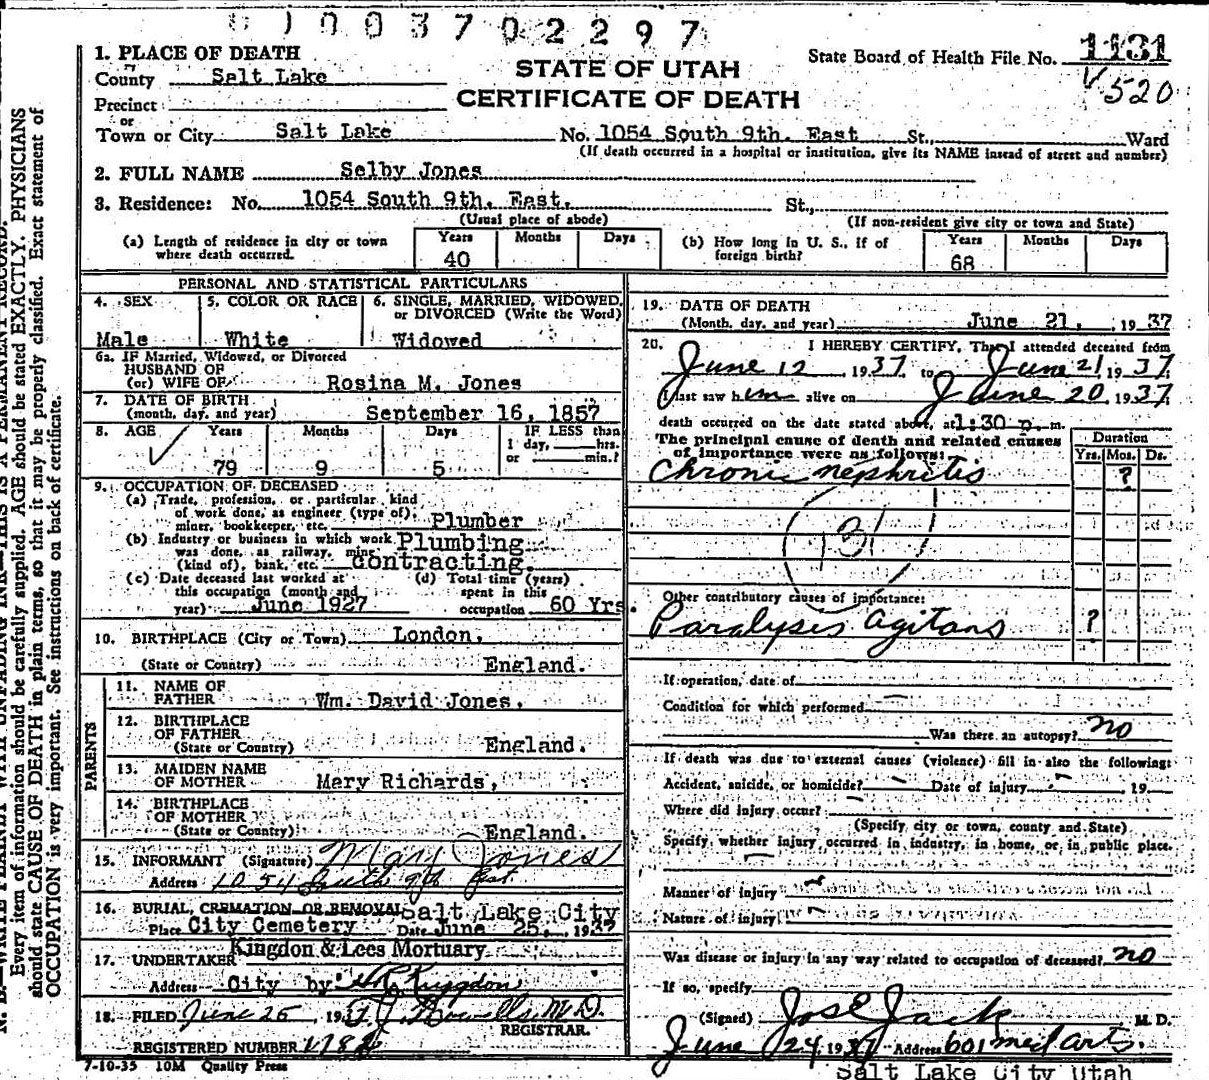 1003702297
1. PLACE OF DEATH
STATE OF UTAH
CERTIFICATE OF DEATH
State Board of Health File No. 1131
V 520
County Salt Lake
Precinct
or
Town or City Salt Lake No. 1054 South 9th. East St., Ward
(If death occurred in a hospital or institution, give its NAME instead of street and number)
2. FULL NAME Selby Jones
3. Residence: No. 1054 South 9th. East. St.,
(Usual place of abode) (If non-resident give city or town and State)
(a) Length of residence in city or town where death occurred. Years 40 Months Days
(b) How long in U. S., if of foreign birth? Years 68 Months Days
PERSONAL AND STATISTICAL PARTICULARS
4. SEX Male
5. COLOR OR RACE White
6. SINGLE, MARRIED, WIDOWED, or DIVORCED (Write the Word) Widowed
6a. IF Married, Widowed, or Divorced
HUSBAND OF
(or) WIFE OF Rosina M. Jones
7. DATE OF BIRTH
(month, day, and year) September 16, 1857
8. AGE Years 79 Months 9 Days 5 IF LESS than 1 day, hrs. or min.?
9. OCCUPATION OF DECEASED
(a) Trade, profession, or particular kind
of work done, as engineer (type of),
miner, bookkeeper, etc. Plumber
(b) Industry or business in which work
was done, as railway, mine
(kind of), bank, etc. Plumbing contracting.
(c) Date deceased last worked at
this occupation (month and
year) June 1927
(d) Total time (years)
spent in this
occupation 60 Yrs.
10. BIRTHPLACE (City or Town) London,
(State or Country) England.
PARENTS
11. NAME OF
FATHER Wm. David Jones,
12. BIRTHPLACE
OF FATHER
(State or Country) England.
13. MAIDEN NAME
OF MOTHER Mary Richards,
14. BIRTHPLACE
OF MOTHER
(State or Country) England.
15. INFORMANT (Signature) Mary Jones
Address 1054 South 9th East.
16. BURIAL, CREMATION OR REMOVAL Salt Lake City
Place City Cemetery Date June 25, 1937
17. UNDERTAKER Kingdon & Lees Mortuary
Address City by
18. FILED June 25, 193 M.D.
REGISTRAR.
REGISTERED NUMBER
7-10-35 10M Quality Press
19. DATE OF DEATH
(Month, day, and year) June 21, 1937
20. I HEREBY CERTIFY, That I attended deceased from
June 12 1937, to June 21 1937.
I last saw him alive on June 20, 1937
death occurred on the date stated above, at 1:30 p. m.
The principal cause of death and related causes
of importance were as follows:
Duration
Yrs. Mos. Ds.
Chronic nephritis ?
131
Other contributory causes of importance:
Paralysis agitans ?
If operation, date of
Condition for which performed
Was there an autopsy? no
If death was due to external causes (violence) fill in also the following:
Accident, suicide, or homicide? Date of injury 19
Where did injury occur?
(Specify city or town, county and State)
Specify whether injury occurred in industry, in home, or in public place.
Manner of injury
Nature of injury
Was disease or injury in any way related to occupation of deceased? no
If so, specify
(Signed) Jos E Jack M. D.
June 24 1937 Address 601 med arts.
Salt Lake City Utah
N. B.—WRITE PLAINLY WITH UNFADING INK—THIS IS A PERMANENT RECORD.
Every item of information should be carefully supplied. AGE should be stated EXACTLY. PHYSICIANS
should state CAUSE OF DEATH in plain terms, so that it may be properly classified. Exact statement of
OCCUPATION is very important. See instructions on back of certificate.